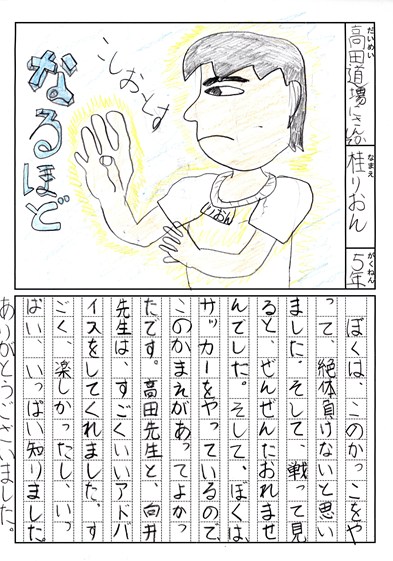 だいめい
高田道場にさんか
なまえ
桂りおん
がくねん
5年
こしおとす
なるほど
りおん
ぼくは、このかっこをや
って、絶体負けないと思い
ました。そして、戦って見
ると、ぜんぜんたおれませ
んでした。そして、ぼくは、
サッカーをやっているので、
このかまえがあってよかっ
たです。高田先生と、向井
先生は、すごくいいアドバ
イスをしてくれました。す
ごく、楽しかったし、いっ
ぱい、いっぱい知りました。
ありがとうございました。